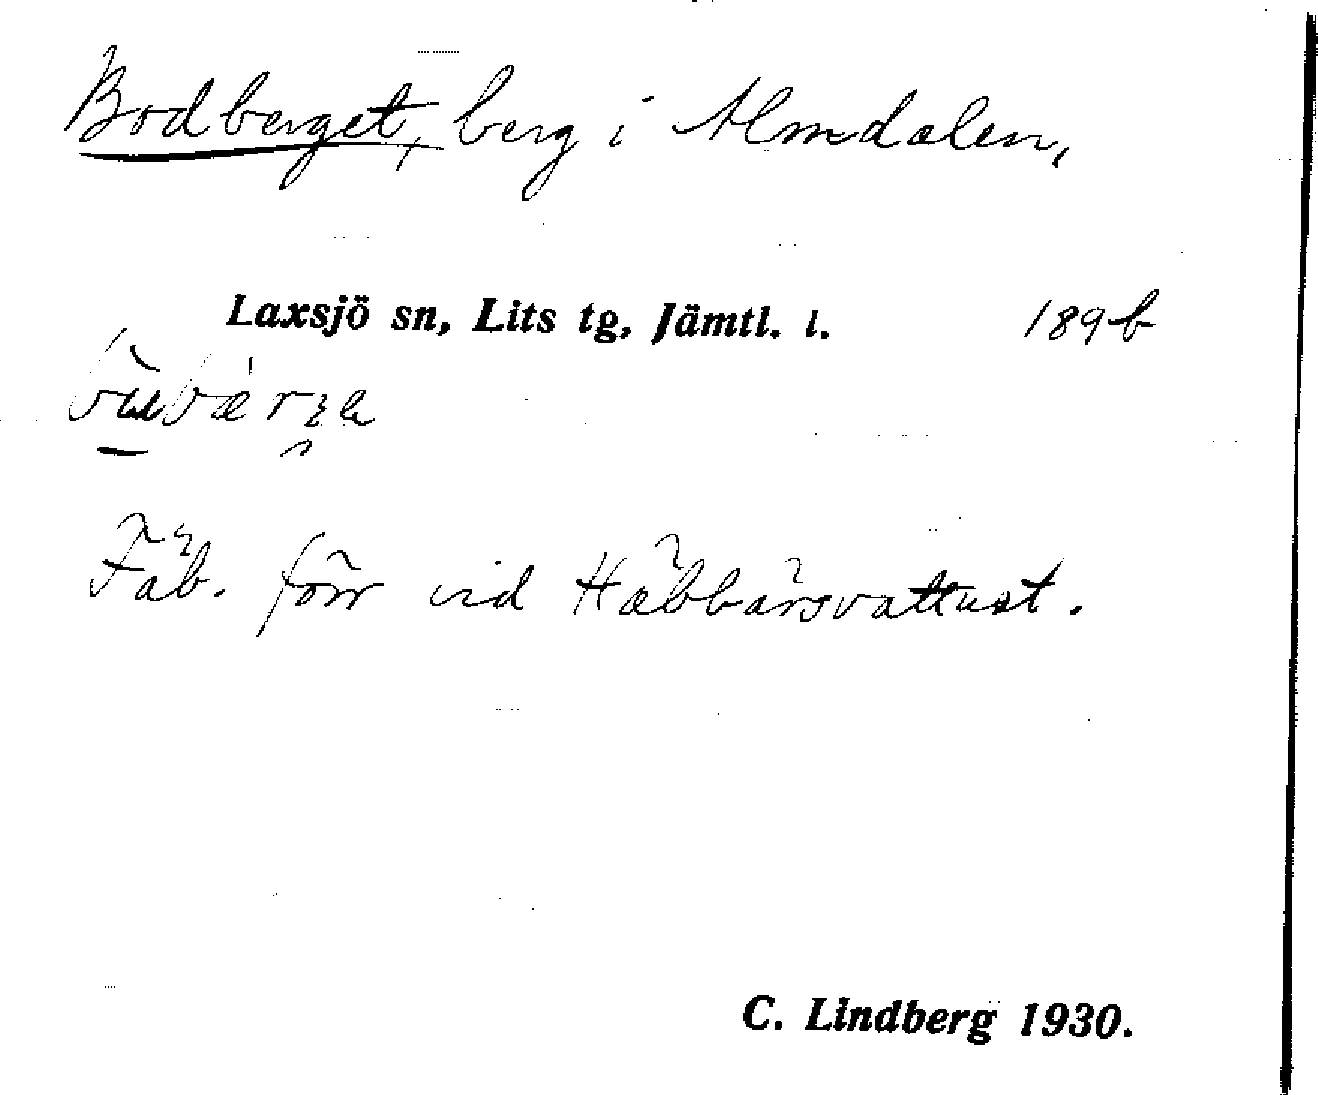 Bodberget, berg i Almdalen,
Laxsjö sn, Lits tg, Jämtl. l. 189b
Fäb. förr vid Häbbärsvattnet.
C. Lindberg 1930.